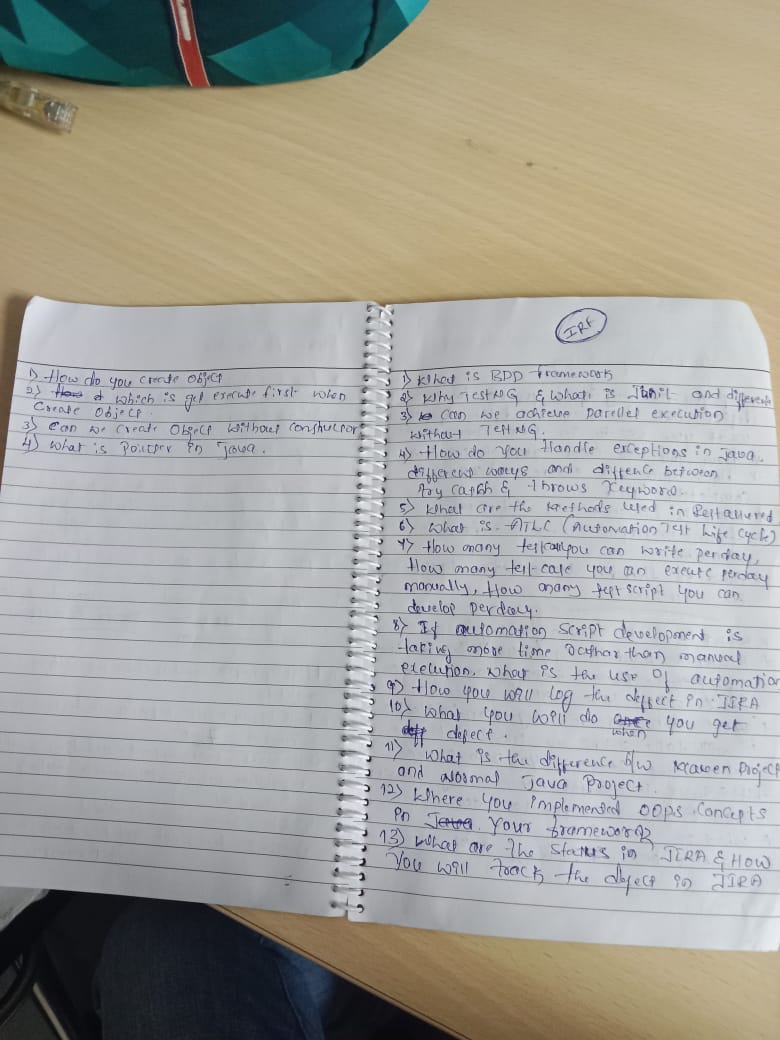 1) How do you create Object
2) How d which is get execute first when
Create Object.
3) Can we create Object without constructor
4) What is Pointer in Java.
IRF
1) What is BDD framework
2) Why TestNG & what is Junit and difference
3) Can we achieve parellel execution
without TestNG.
4) How do you Handle exceptions in Java.
different ways and diffence between.
Try catch & throws keyword.
5) What are the Methods used in RestAssured
6) What is ATLC (Automation Test Life Cycle)
7) How many testcase you can write perday,
How many test-case you can execute perday
manually, How many test script you can
develop perday.
8) If automation script development is
taking more time rather than manual
execution. what is the use of automation
9) How you will log the deffect in JIRA
10) What you will do once when you get
deff defect.
11) What is the difference b/w Maven Project
and Normal Java Project.
12) Where you implemented OOPS Concepts
in Java Your framework?
13) What are the status in JIRA & How
You will track the defect in JIRA